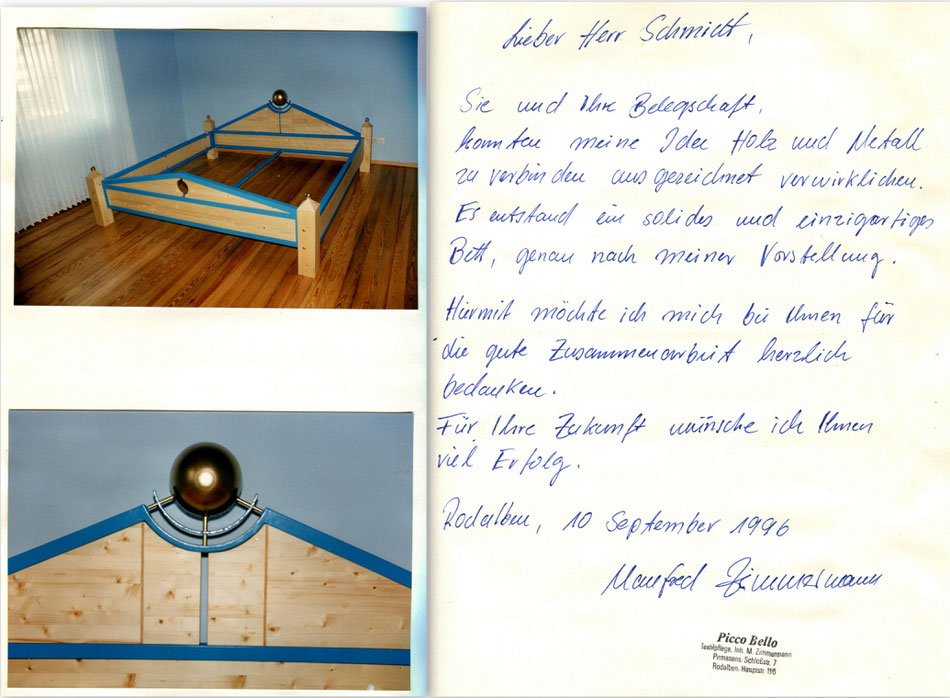 Lieber Herr Schmidt,
Sie und Ihre Belegschaft,
konnten meine Idee Holz und Metall
zu verbinden ausgezeichnet verwirklichen.
Es entstand ein solides und einzigartiges
Bett, genau nach meiner Vorstellung.
Hiermit möchte ich mich bei Ihnen für
die gute Zusammenarbeit herzlich
bedanken.
Für Ihre Zukunft wünsche ich Ihnen
viel Erfolg.
Rodalben, 10 September 1996
Manfred Zimmermann
Picco Bello
Textilpflege, Inh. M. Zimmermann
Pirmasens: Schloßstr. 7
Rodalben: Hauptstr. 116